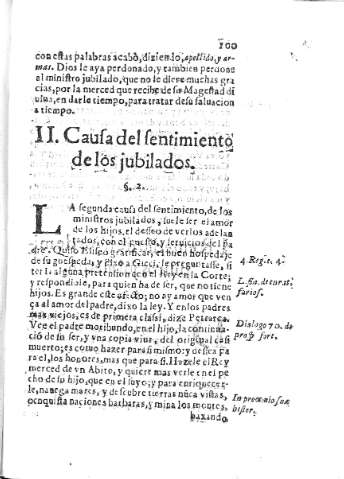 100
con estas palabras acabò, diziendo, apellido, y ar-
mas. Dios le aya perdonado, y tambien perdone
el ministro jubilado, que no le diere muchas gra
cias, por la merced que recibe de su Magestad di
uina, en darle tiempo, para tratar de su saluacion
a tiempo.
II. Causa del sentimiento
de los jubilados.
§. 2.
LA segunda causa del sentimiento, de los
ministros jubilados, suele ser el amor
de los hijos, el desseo de verlos adelan
tados, con el puesto, y seruicios del pa
dre. Quiso Eliseo gratificar, el buen hospedaje
de su guespeda, y dixo a Gieci, le preguntasse, si
tenia alguna pretension con el Rey en la Corte;
y respondiole, para quien ha de ser, que no tiene
hijos. Es grande este afecto; no ay amor que ven
ça al amor del padre, dixo la ley. Y en los padres
mas viejos, es de primera classi, dize Petrarca.
Vee el padre moribundo, en el hijo, la continua-
ciõ de su ser, y vna copia viua, del original casi
muerto; es como hazer para si mismo; y dessea pa
ra el, los honores, mas que para si. Hazele el Rey
merced de vn Abito, y quiere mas verle en el pe
cho de su hijo, que en el suyo; y para enriquecer-
le, nauega mares, y descubre tierras nũca vistas,
conquista naciones barbaras, y mina los montes,
baxando
4. Reg. c. 4.
L. fin. de curat.
furiosi.
Dialogo 70. de
prosp. fort.
In proemio suæ